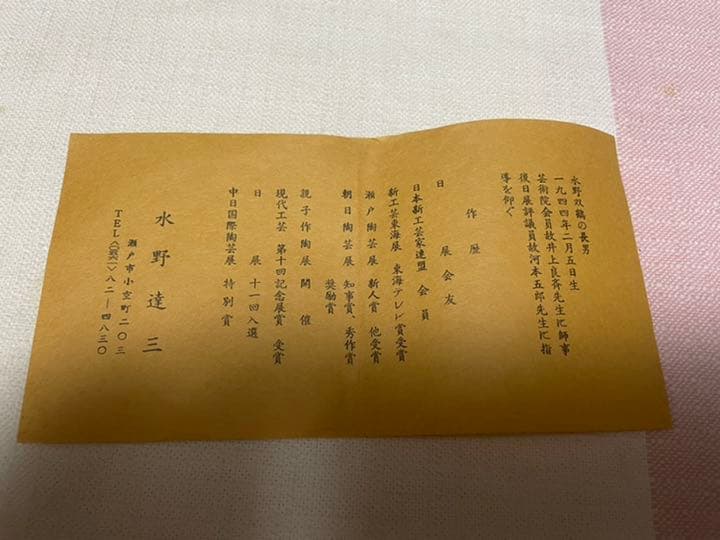 水野双鶴の長男
一九四四年二月五日生
芸術院会員故井上良斉先生に師事
後日展評議員故河本五郎先生に指
導を仰ぐ
作歴
日展会友
日本新工芸家連盟 会員
新工芸東海展 東海テレビ賞受賞
瀬戸陶芸展 新人賞 他受賞
朝日陶芸展 知事賞、秀作賞
奨励賞
親子作陶展 開催
現代工芸 第十回記念展賞 受賞
日展 十一回入選
中日国際陶芸展 特別賞
水野達三
瀬戸市小空町二〇三
TEL〈〇五六一〉八二―四八三〇